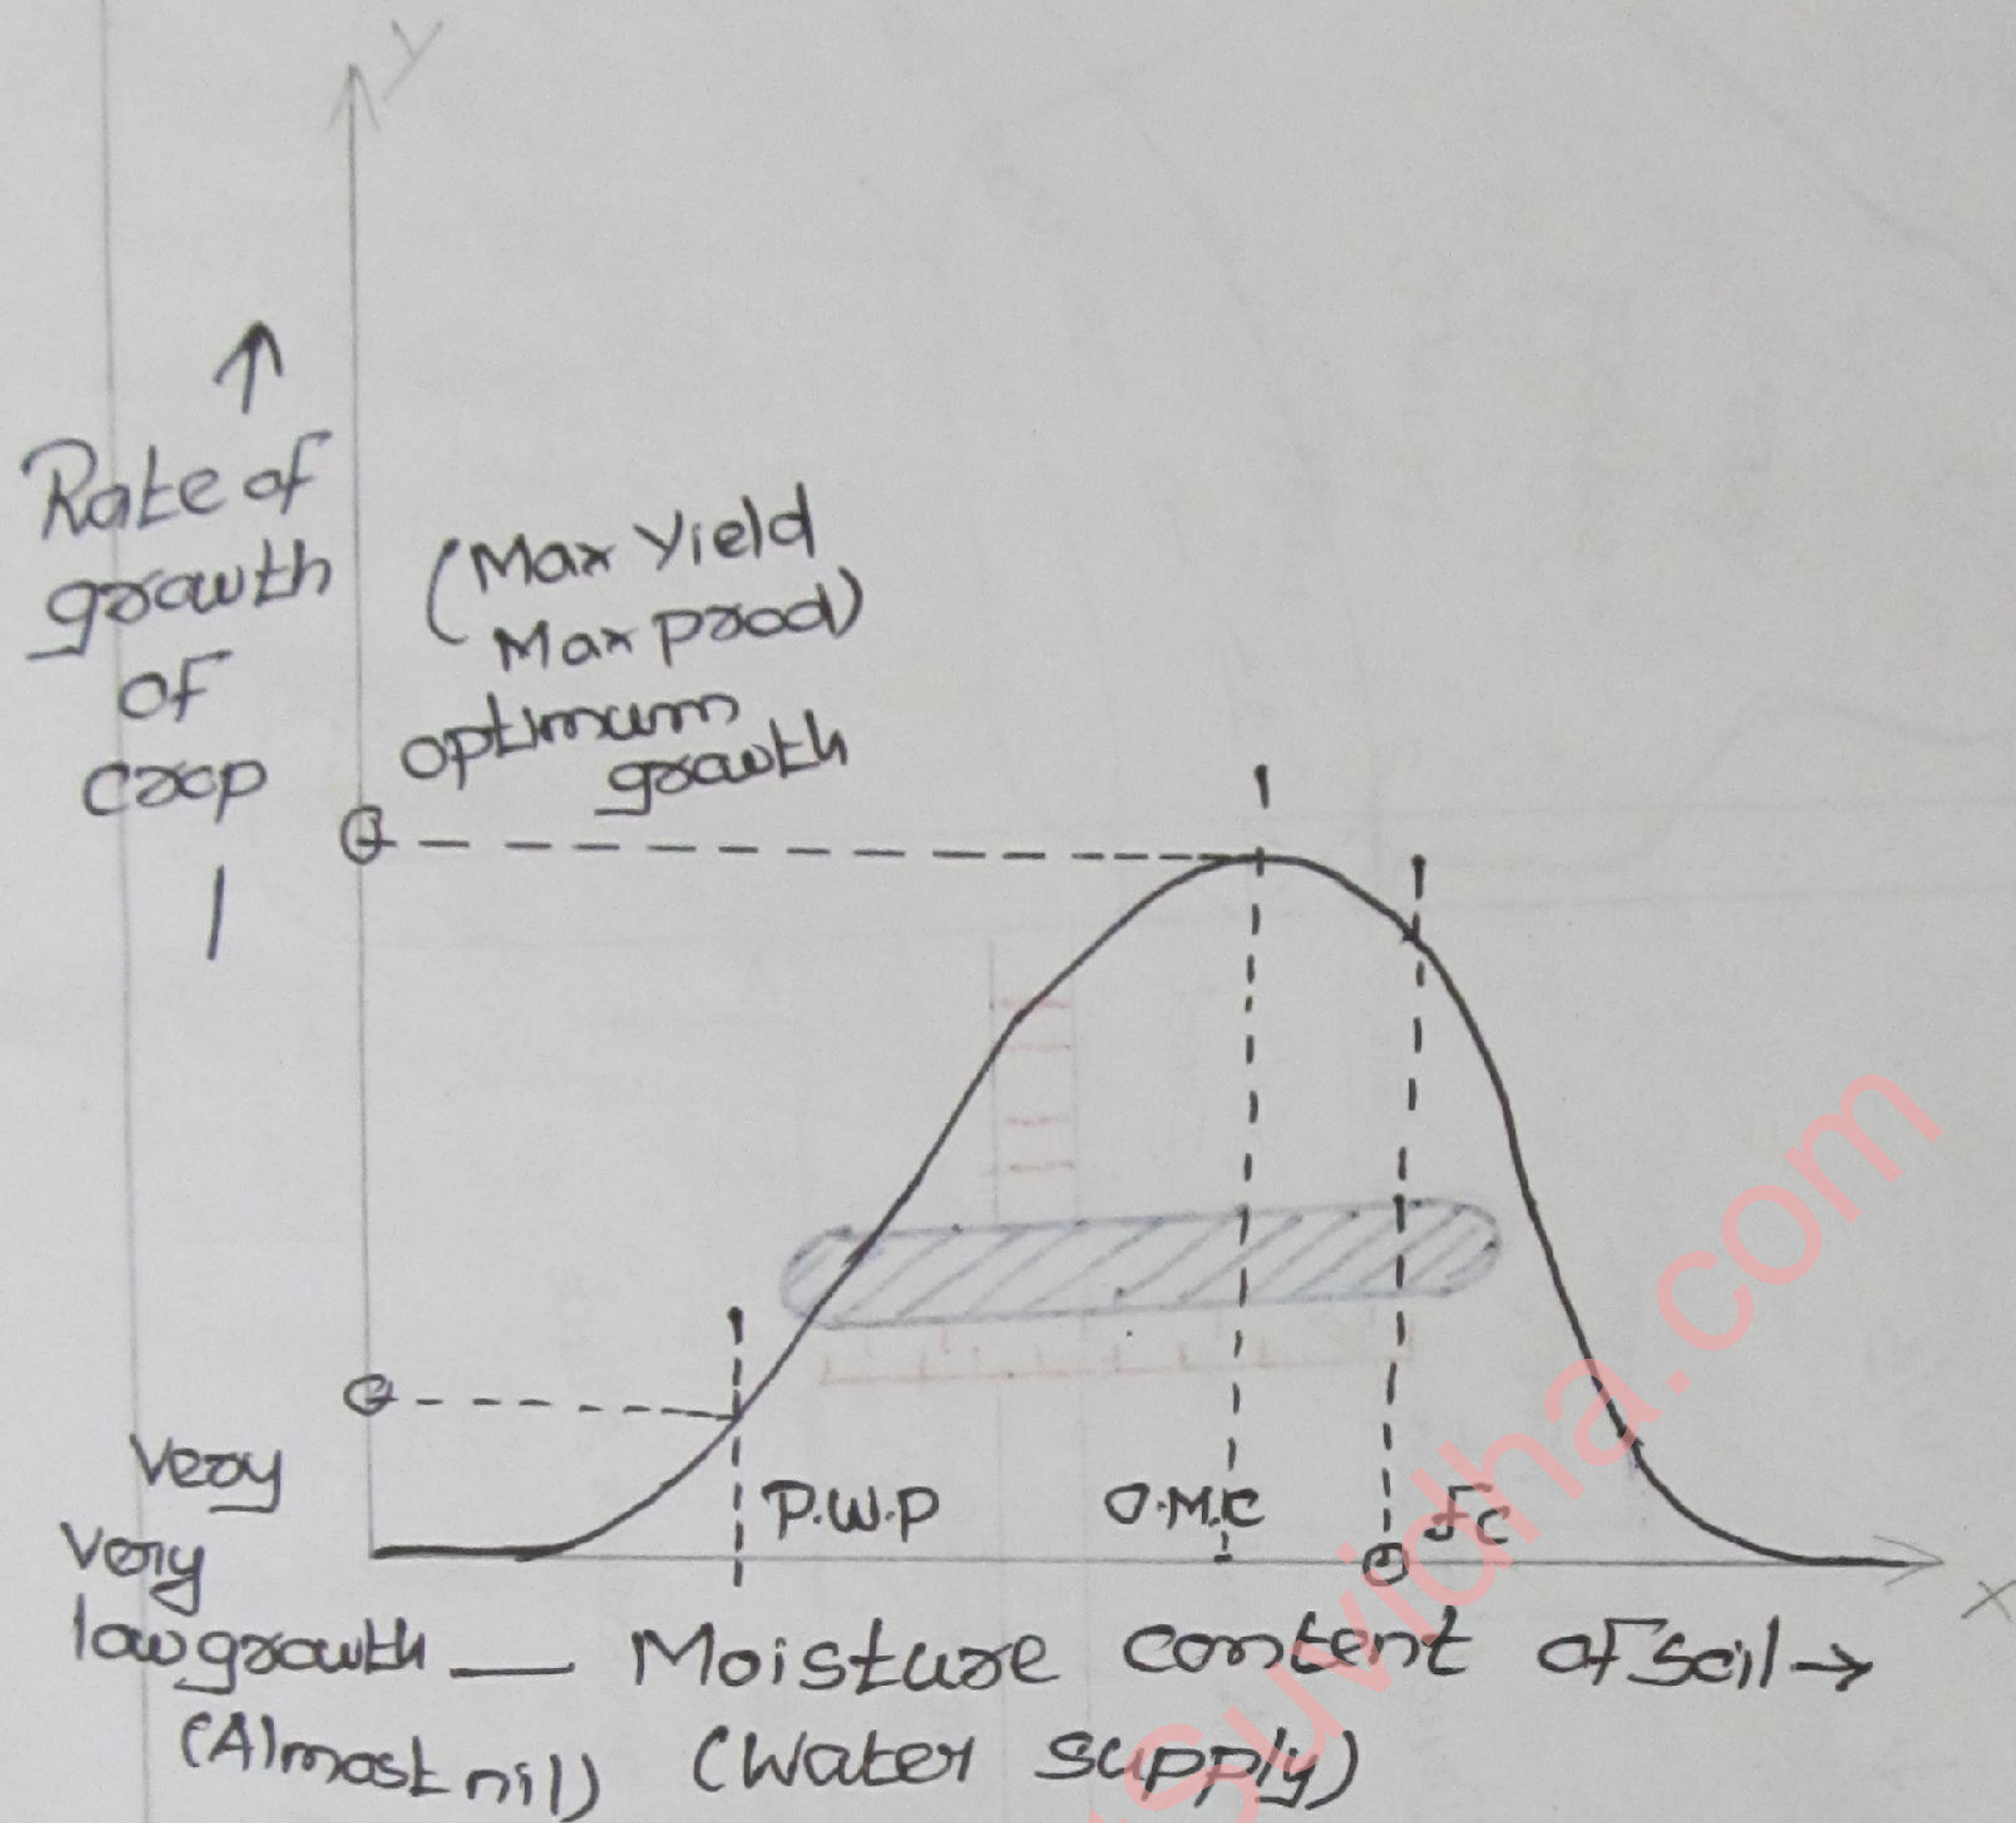 Y
↑
Rate of
growth
of
crop
(Max Yield
Max prod)
optimum
growth
Very
Very
low growth
(Almost nil)
P.W.P
O.M.C
FC
X
— Moisture content of soil →
(Water supply)
suvidha.com